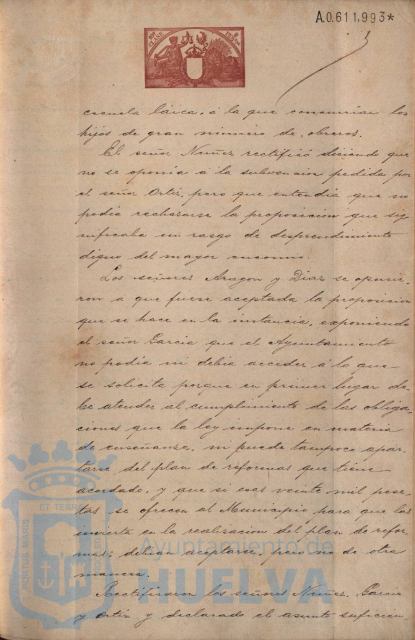 A.0.611,993*
escuela láica, á la que concurrian los
hijos de gran número de obreros.
El señor Nuñez rectificó diciendo que
no se oponia á la subvencion pedida por
el señor Ortiz, pero que entendia que no
podia rechazarse la proposicion que sig
nificaba un rasgo de desprendimiento
digno del mayor encomio.
Los señores Aragon y Diaz se opusie-
ron a que fuese aceptada la proposicion
que se hace en la instancia, exponiendo
el señor Garcia que el Ayuntamiento
no podia ni debia acceder á lo que
se solicita porque en primer lugar de-
be atender al cumplimiento de las obliga-
ciones que la ley impone en materia
de enseñanza, ni puede tampoco apar-
tarse del plan de reformas que tiene
acordado, y que si esas veinte mil pese-
tas se ofrecen al Municipio para que las
invierta en la realizacion del plan de refor
mas, debian aceptarse, pero no de otra
manera.
Rectificaron los señores Nuñez, Garcia
y Ortiz y declarado el asunto suficien
Ayuntamiento de
HUELVA
PORTUS MARIS
ET TERRAE